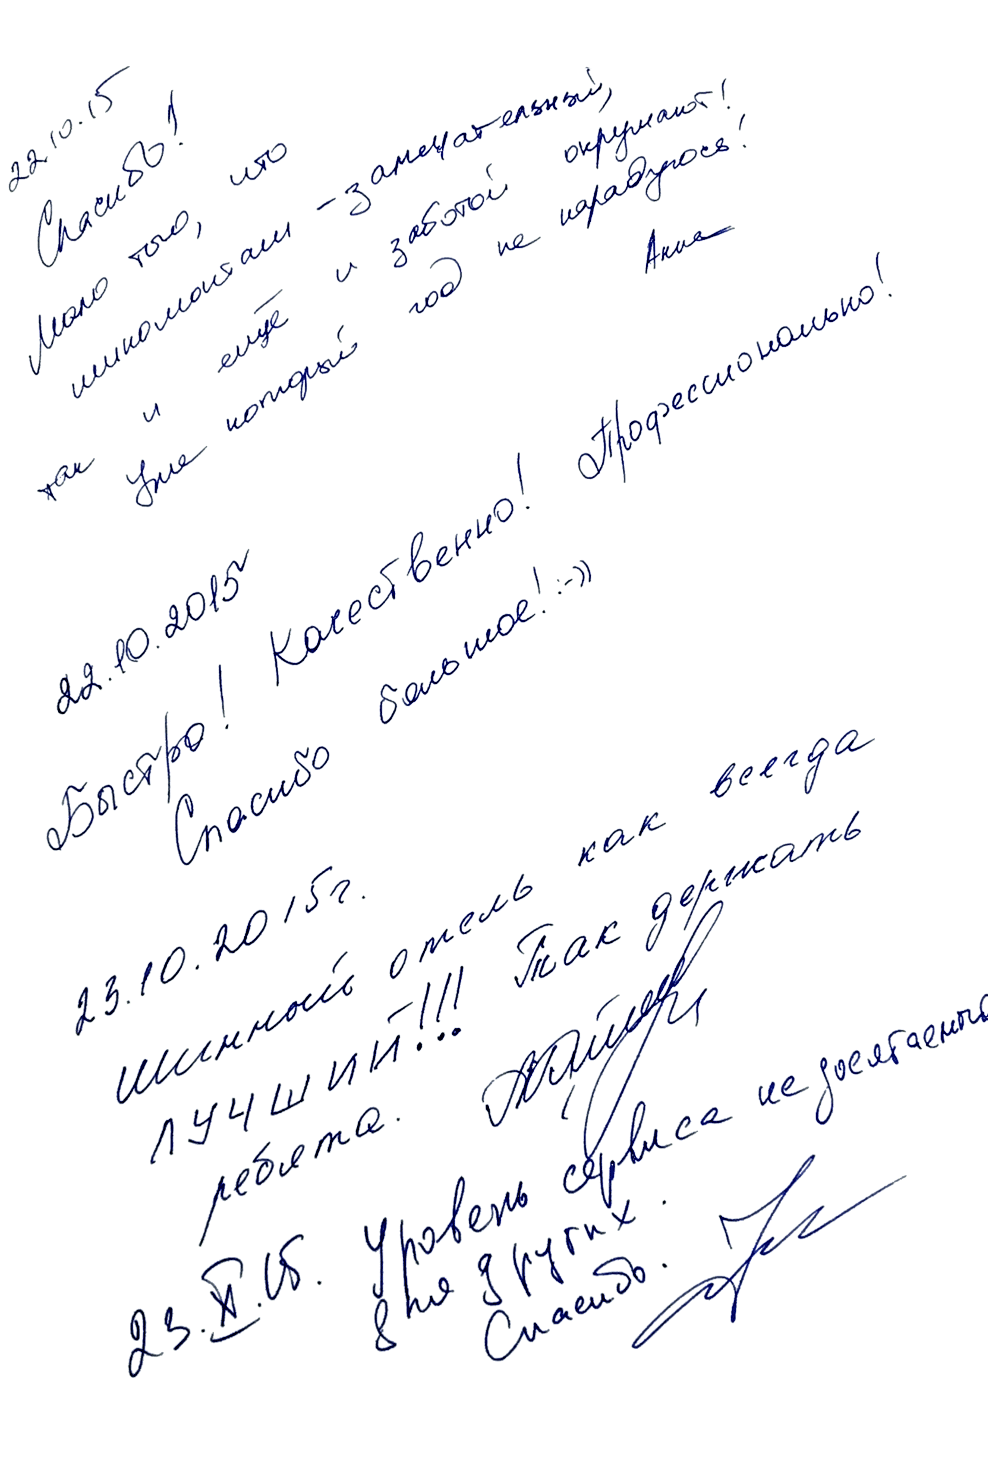 22.10.15
Спасибо!
Мало того, что
шиномонтаж - замечательный,
так и ещё и заботой окружают!
Уже который год не нарадуюсь!
Анна
22.10.2015
Быстро! Качественно! Профессионально!
Спасибо большое! :-))
23.10.2015г.
Шинный отель как всегда
ЛУЧШИЙ!!! Так держать
ребята.
23.XI.15. Уровень сервиса не досягаемый
для других.
Спасибо.